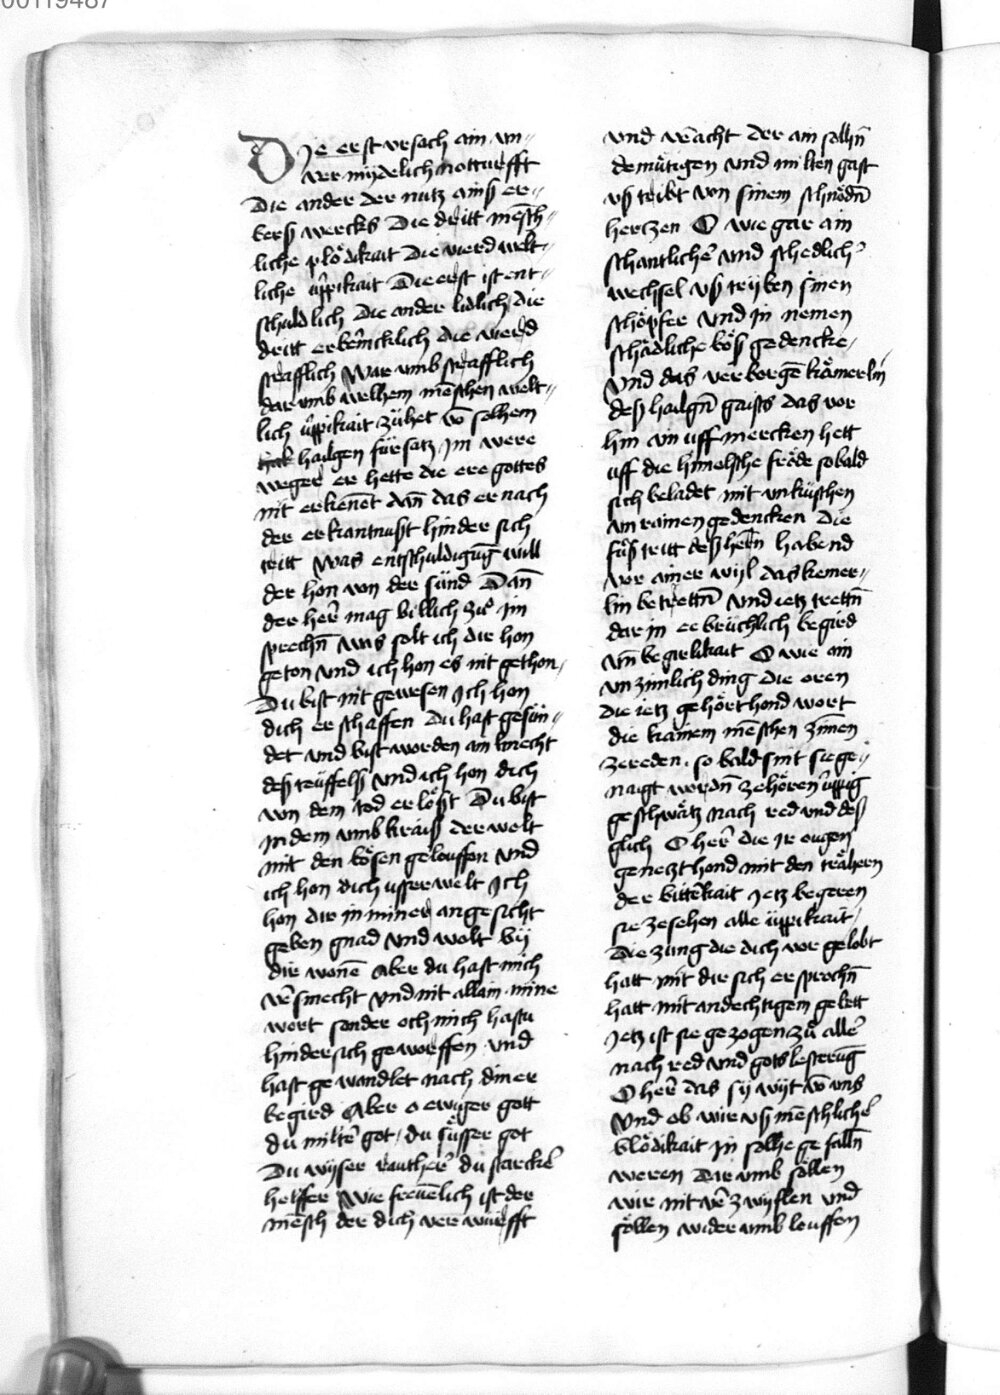 00119487
DJe erst vrsach ain vn-
vermydelich notturfft
Die ander der nutz ains er-
bers wercks Die dritt mēsch-
liche plödikait Die vierd welt-
liche ǔppikait Die erst ist ent-
schuldlich Die ander lidlich die
dritt erbērmcklich die vierd
strafflich War vmb strafflich
dar vmb welhem mēschen welt-
lich ǔppikait zühet vō solhem
hailgen fürsatz Jm were
weger er hette die ere gottes
nit erkēnet dān das er nach
der erkantnuſzt hinder sich
tritt Was entschuldigūg will
der hon von der sünd Dān
der her̄ mag billich zů im
sprechn̄ was solt ich dir hon
geton vnd ich hon es nit gethon
Du bist nit gewesen Jch hon
dich erschaffen Du hast gesün-
det vnd bist worden ain knecht
deſz teüffelſz vnd ich hon dich
von dem tod erlöſzt Du bist
in dem vmbkraiſz der welt
mit den bösen gelouffen vnd
ich hon dich vſſerwelt Jch
hon dir in miner angesicht
geben gnad vnd wolt by
dir wonē Aber du hast mich
v̄smecht vnd nit allain mine
wort sonder och mich hastu
hindersich geworffen vnd
hast gewandlet nach diner
begird Aber o ewiger gott
du milter̄ got / du süſſer got
Du wyser du starcker̄
helffer Wie freuēlich ist der
mēsch der dich verwürfft
vnd v̄acht der ain sölln̄
demütigen vnd milten gast
vſz tribt von sinem schnödn̄
hertzen O wie gar ain
schantlicher̄ vnd schedlich̄
wechsel vſz tryben sinen
schöpfer vnd in nemen
schädliche böſz gedencke
vnd das verborgē kämerlin
deſz hailgn̄ gaists das vor
hin vff mercken hett
vff die himelsche fröde so bald
sich beladet mit vnküschen
vnrainen gedencken Die
füſz tritt deſz hern̄ habend
vor ainer wyl das kemer-
lin betrettn̄ vnd ietz trettn̄
dar in eebrüchlich begird
vn̄ begirlikait O wie ain
vnzimlich ding die oren
die ietz gehört hond wort
die kainem mēschen zīmen
zereden . so bald sint sie ge-
naigt wordn̄ zehören ǔppig
geschwätz nach red vnd deſz
glich O her̄ die ir ougen
genetzt hond mit den trähern
der bitterkait Jetz begeren
sie zesehen alle üppikait /
Die zung die dich vor gelobt
hatt mit dir sich ersprochn̄
hatt mit andechtigem gebett
Jetz ist sie gezogen zů aller̄
nach red vnd gots lesterūg
O her̄ das sy wyt vō vns
Vnd ob wir vſz mēschlicher̄
blödikait in solhe gefalln̄
weren Dar vmb söllen
wir nit v̄zwyflen vnd
söllen wider vmb louffen